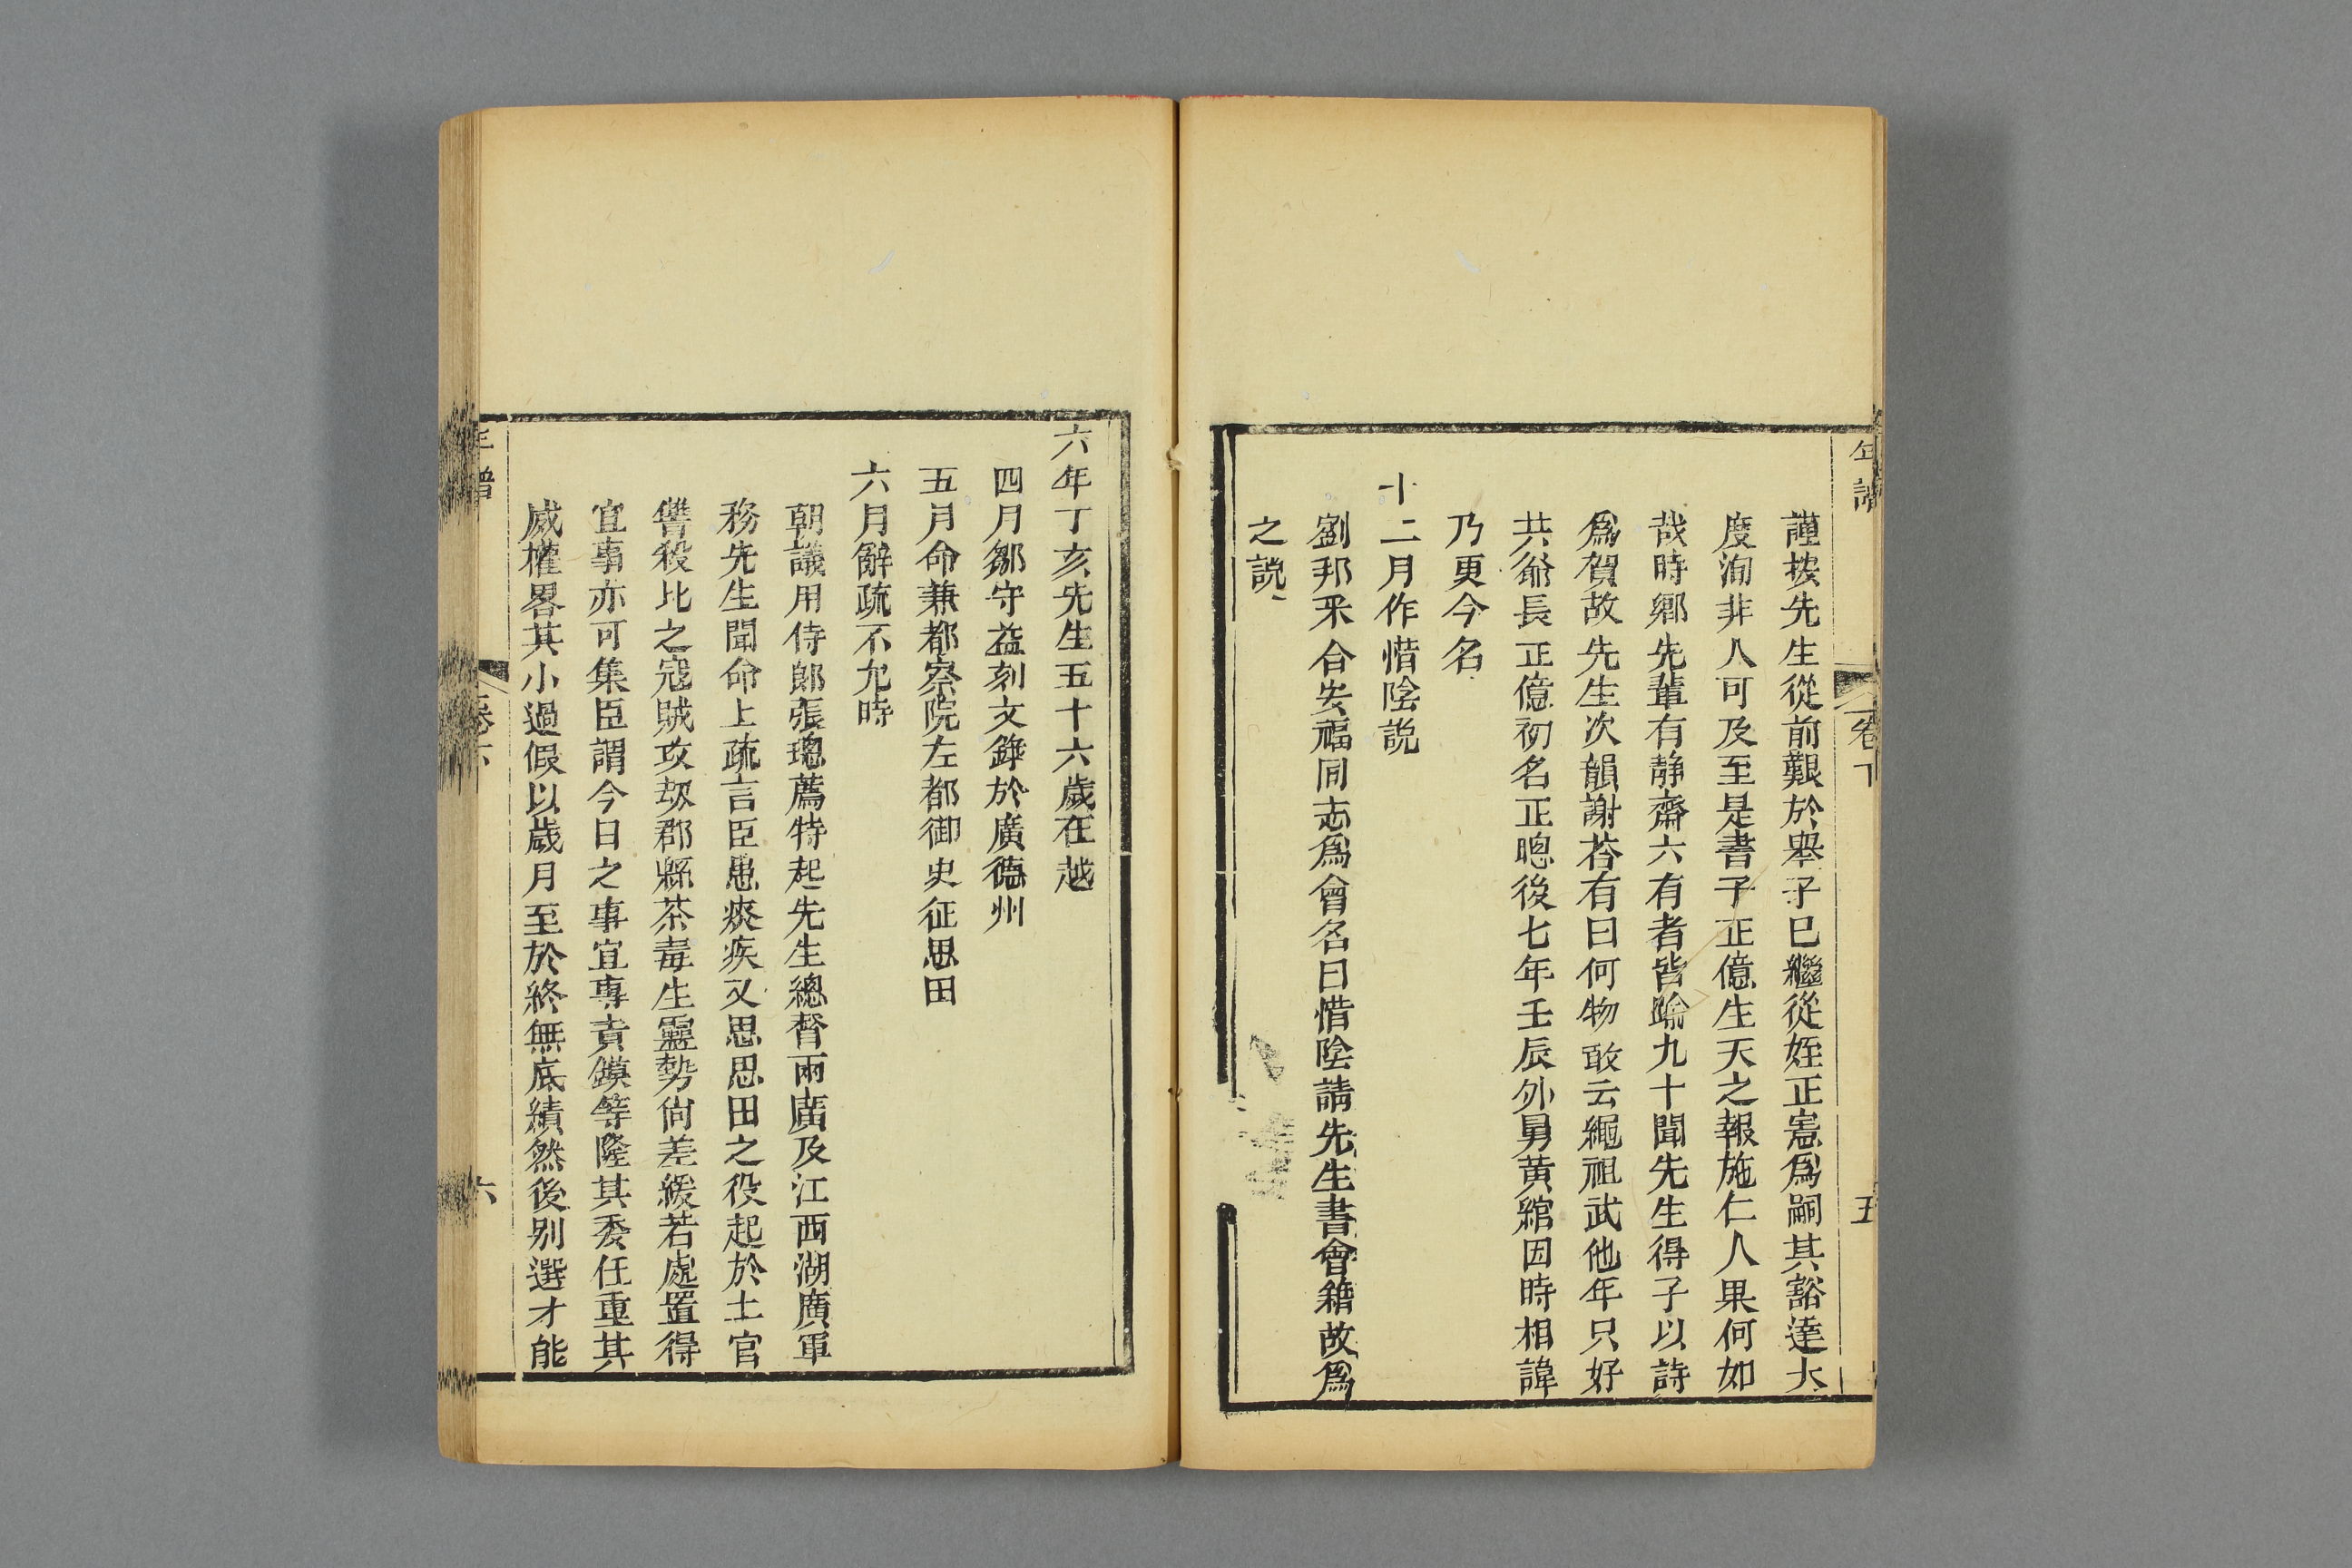 年譜 卷下 五
謹按先生從前艱於舉子已繼從姪正憲爲嗣其豁達大
度洵非人可及至是書子正億生天之報施仁人果何如
哉時鄉先輩有静齋六有者皆踰九十聞先生得子以詩
爲賀故先生次韻謝荅有曰何物敢云繩祖武他年只好
共爺長正億初名正聰後七年壬辰外舅黄綰因時相諱
乃更今名
十二月作惜陰説
劉邦采合安福同志爲會名曰惜陰請先生書會籍故爲
之説
六年丁亥先生五十六歲在越
四月鄒守益刻文錄於廣德州
五月命兼都察院左都御史征思田
六月辭疏不允時
朝議用侍郎張璁薦特起先生總督兩廣及江西湖廣軍
務先生聞命上疏言臣患痰疾又思思田之役起於土官
讐殺比之寇賊攻刼郡縣荼毒生靈勢尙差緩若處置得
宜事亦可集臣謂今日之事宜專責鏌等隆其委任重其
威權畧其小過假以歲月至於終無底績然後别選才能
年譜 卷下 六